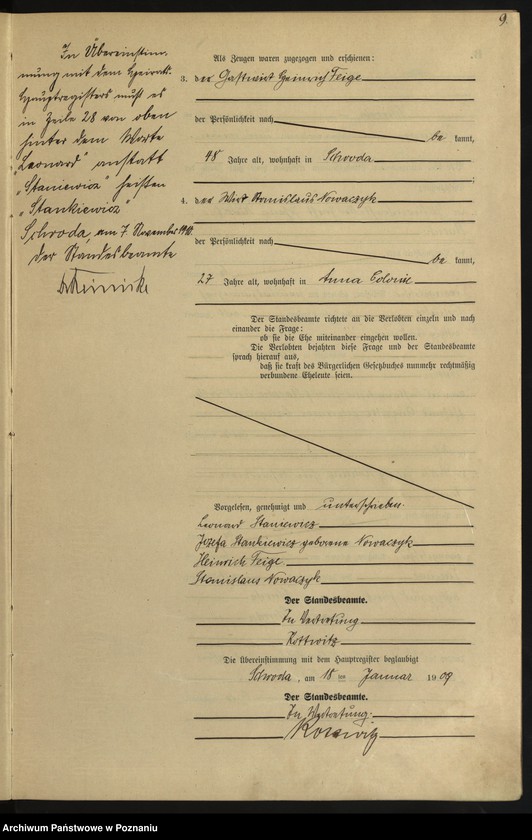 9.
In Übereinstim-
mung mit dem Heirats-
Hauptregisters muß es
in Zeile 28 von oben
hinter dem Worte
„Leonard" anstatt
„Staniewicz" heißen
„Stankiewicz"
Schroda, am 7. November
der Standesbeamte
Als Zeugen waren zugezogen und erschienen:
3. der Gastwirt Heinrich Feige
der Persönlichkeit nach
be kannt,
48 Jahre alt, wohnhaft in Schroda
;
4. der Wirt Stanislaus Nowaczyk
der Persönlichkeit nach
be kannt,
27 Jahre alt, wohnhaft in Anna Colonie
Der Standesbeamte richtete an die Verlobten einzeln und nach
einander die Frage:
ob sie die Ehe miteinander eingehen wollen.
Die Verlobten bejahten diese Frage und der Standesbeamte
sprach hierauf aus,
daß sie kraft des Bürgerlichen Gesetzbuches nunmehr rechtmäßig
verbundene Eheleute seien.
Vorgelesen, genehmigt und unterschrieben.
Leonard Staniewicz
Jozefa Stankiewicz geborene Nowaczyk
Heinrich Feige
Stanislaus Nowaczyk
Der Standesbeamte.
In Vertretung
Kottwitz
Die Übereinstimmung mit dem Hauptregister beglaubigt
Schroda, am 18 ten Januar 1909
Der Standesbeamte.
In Vertretung:
Kottwitz
Archiwum Państwowe w Poznaniu